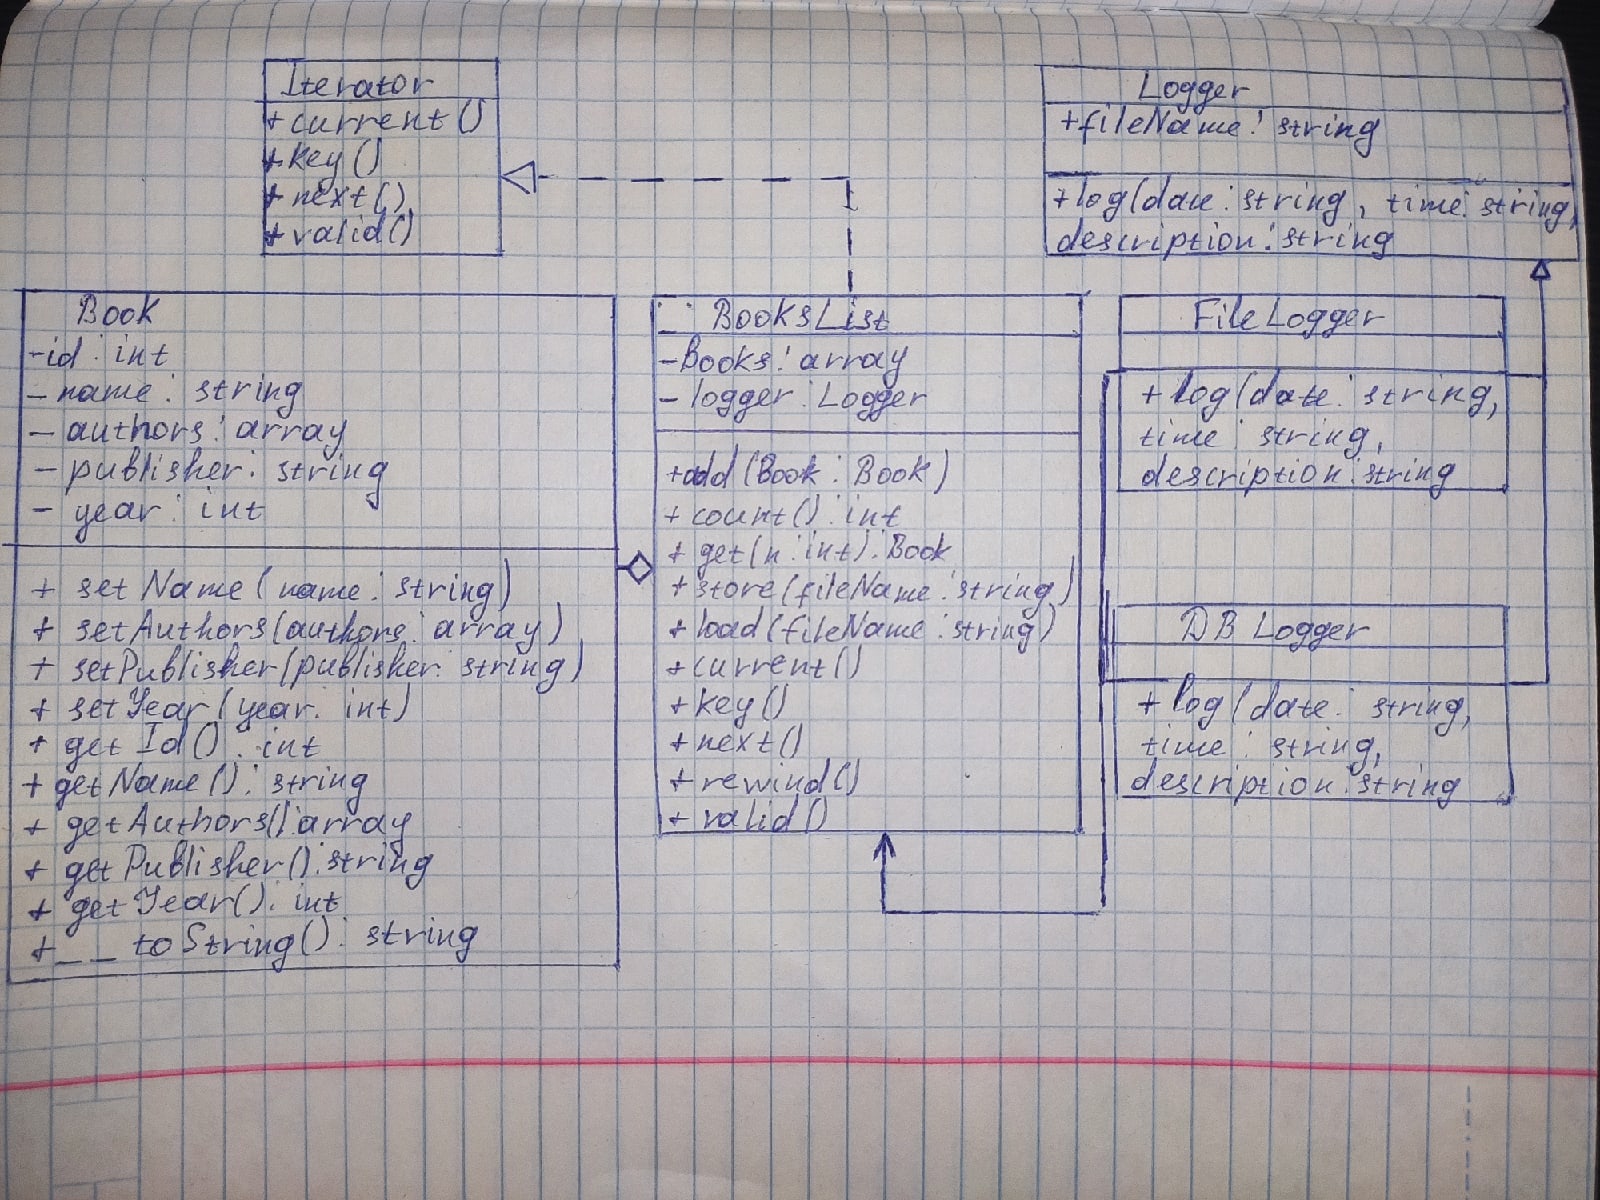 Iterator
+current()
+key()
+next()
+valid()
Logger
+fileName: string
+log(date: string, time: string,
description: string
Book
-id: int
- name: string
- authors: array
- publisher: string
- year: int
+ setName(name: string)
+ setAuthors(authors: array)
+ setPublisher(publisher: string)
+ setYear(year: int)
+ getId(): int
+ getName(): string
+ getAuthors(): array
+ getPublisher(): string
+ getYear(): int
+__toString(): string
BooksList
-Books: array
- logger: Logger
+add(Book: Book)
+ count(): int
+ get(n: int): Book
+ store(fileName: string)
+ load(fileName: string)
+ current()
+ key()
+ next()
+ rewind()
+ valid()
FileLogger
+ log(date: string,
time: string,
description: string
DB Logger
+ log(date: string,
time: string,
description: string